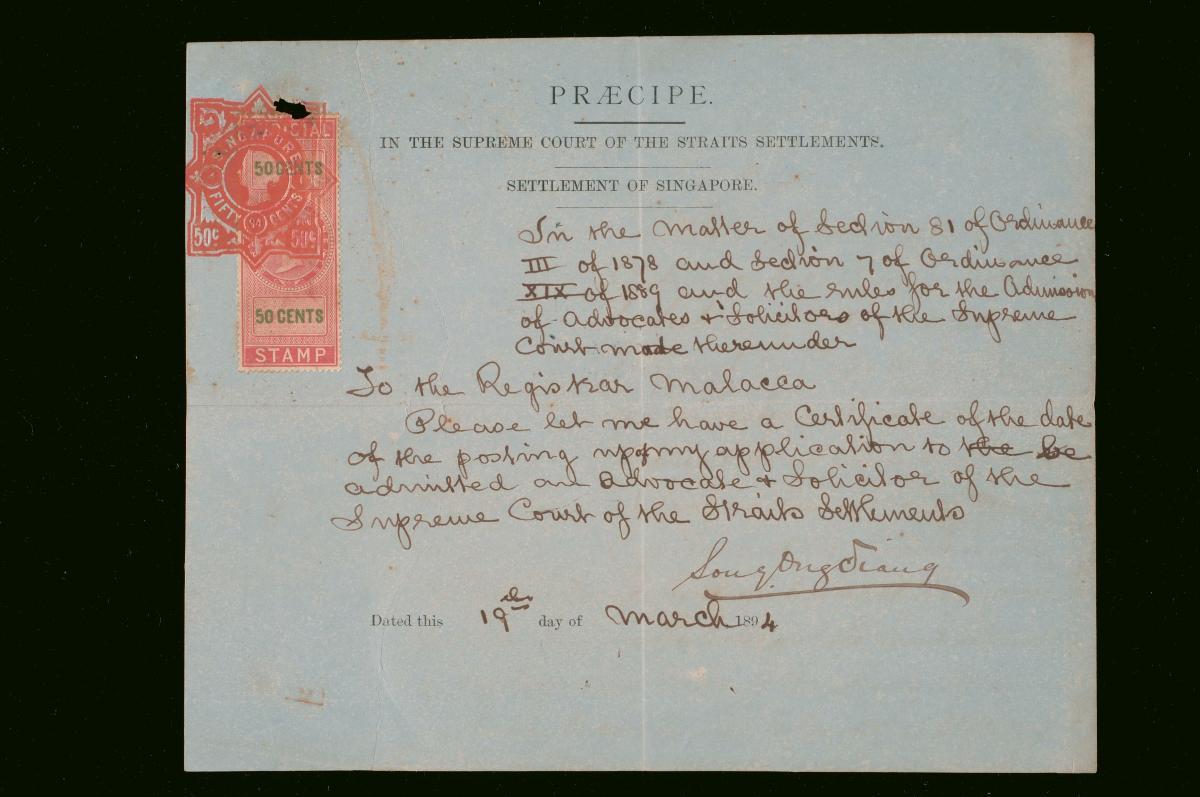 PRÆCIPE.
IN THE SUPREME COURT OF THE STRAITS SETTLEMENTS.
SETTLEMENT OF SINGAPORE.
In the matter of Section 81 of Ordinance
III of 1878 and Section 7 of Ordinance
XIX of 1889 and the rules for the Admission
of Advocates & Solicitors of the Supreme
Court made thereunder
To the Registrar Malacca
Please let me have a Certificate of the date
of the posting up of my application to the be
admitted an Advocate & Solicitor of the
Supreme Court of the Straits Settlements
Song Ong Siang
Dated this 19th day of March 1894
SINGAPORE
FIFTY CENTS
50c 50c
50 CENTS
50 CENTS
STAMP